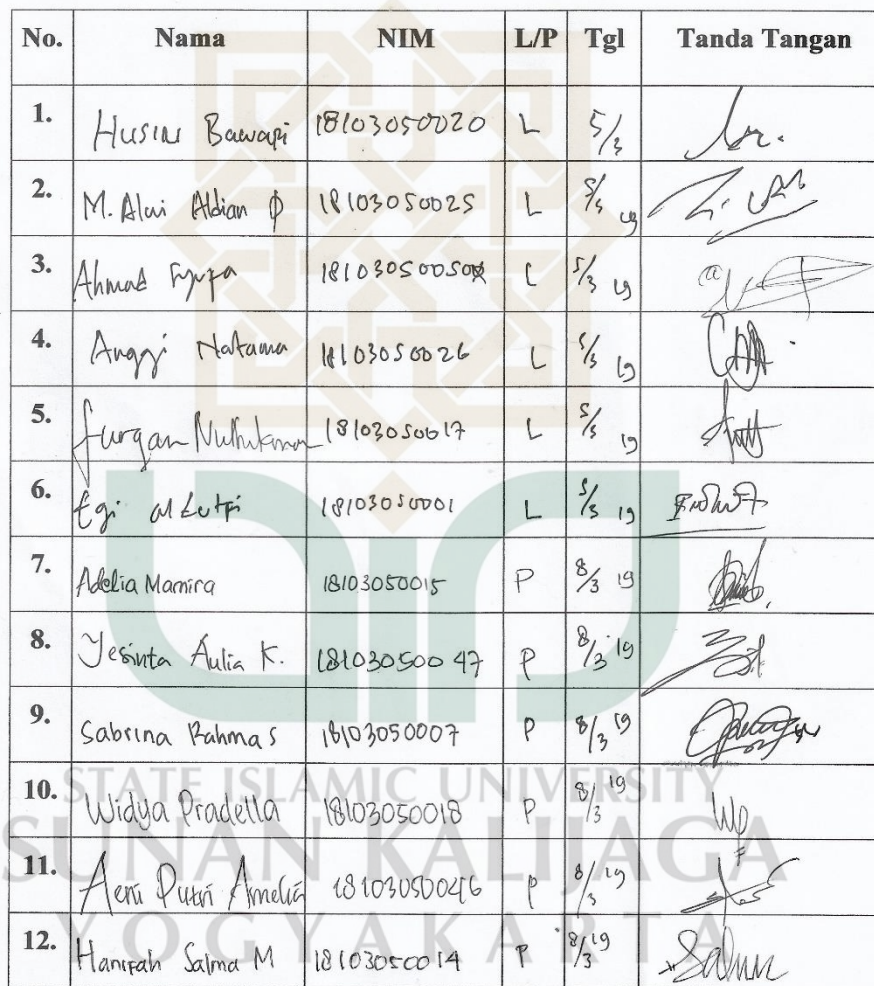 No. Nama NIM L/P Tgl Tanda Tangan
1. Husin Bawapi 18103050020 L 5/3
2. M. Alwi Aldian 18103050025 L 5/3 19
3. Ahmad 1810305005 L 5/3 19
4. Anggi Natama 18103050026 L 5/3 19
5. Furqan 18103050017 L 5/3 19
6. Egi al Lutfi 18103050001 L 5/3 19
7. Adelia Mamira 18103050015 P 8/3 19
8. Yesinta Aulia K. 18103050047 P 8/3 19
9. Sabrina Rahma S 18103050007 P 8/3 19
10. Widya Pradella 18103050018 P 8/3 19
11. Aeni Putri Amelia 18103050046 P 8/3 19
12. Hanifah Salma M 18103050014 P 8/3 19
STATE ISLAMIC UNIVERSITY
SUNAN KALIJAGA
YOGYAKARTA